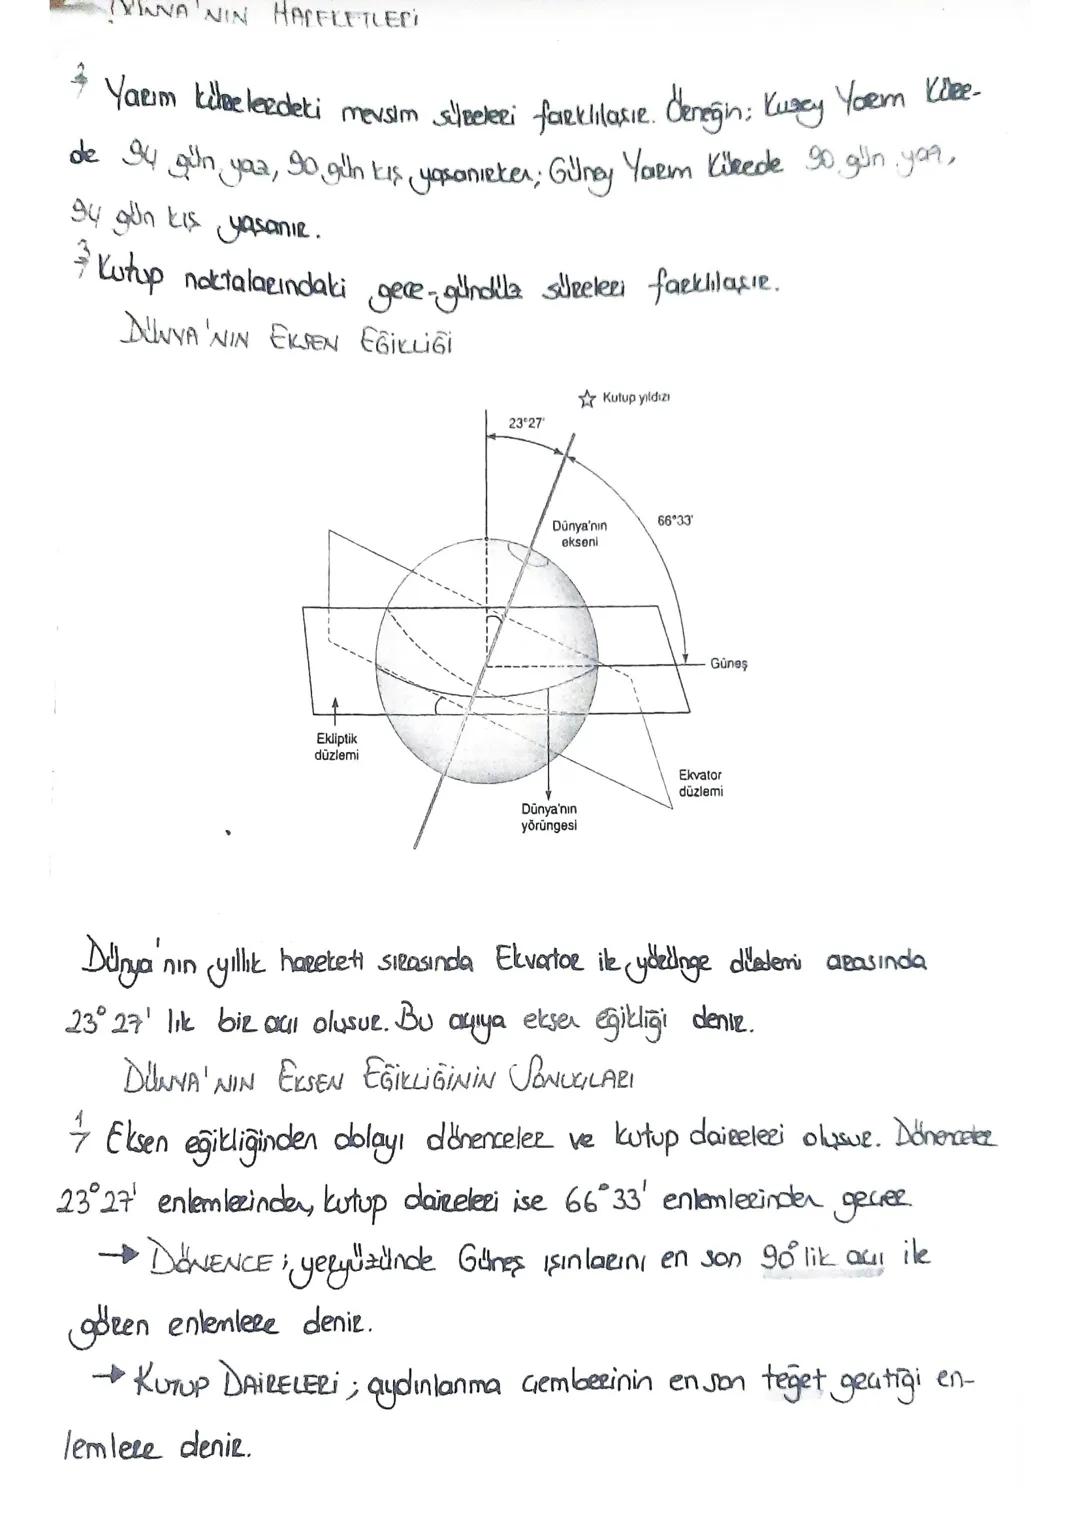 DÜNYA'NIN HAREKETLERİ
2/ Yarım kürelerdeki mevsim süreleri farklılaşır. Örneğin; Kuzey Yarım Küre-
de 94 gün yaz, 90 gün kış yaşanırken; Güney Yarım Kürede 90 gün yaz,
94 gün kış yaşanır.
3/ Kutup noktalarındaki gece-gündüz süreleri farklılaşır.
DÜNYA'NIN EKSEN EĞİKLİĞİ
Kutup yıldızı
23°27'
66°33'
Dünya'nın
ekseni
Güneş
Ekliptik
düzlemi
Ekvator
düzlemi
Dünya'nın
yörüngesi
Dünya'nın yıllık hareketi sırasında Ekvator ile yörünge düzlemi arasında
23°27' lık bir açı oluşur. Bu açıya eksen eğikliği denir.
DÜNYA'NIN EKSEN EĞİKLİĞİNİN SONUÇLARI
1/ Eksen eğikliğinden dolayı dönenceler ve kutup daireleri oluşur. Dönenceler
23°27' enlemlerinden, kutup daireleri ise 66°33' enlemlerinden geçer.
→ DÖNENCE; yeryüzünde Güneş ışınlarını en son 90° lik açı ile
gören enlemlere denir.
→ KUTUP DAİRELERİ; aydınlanma çemberinin en son teğet geçtiği en-
lemlere denir.